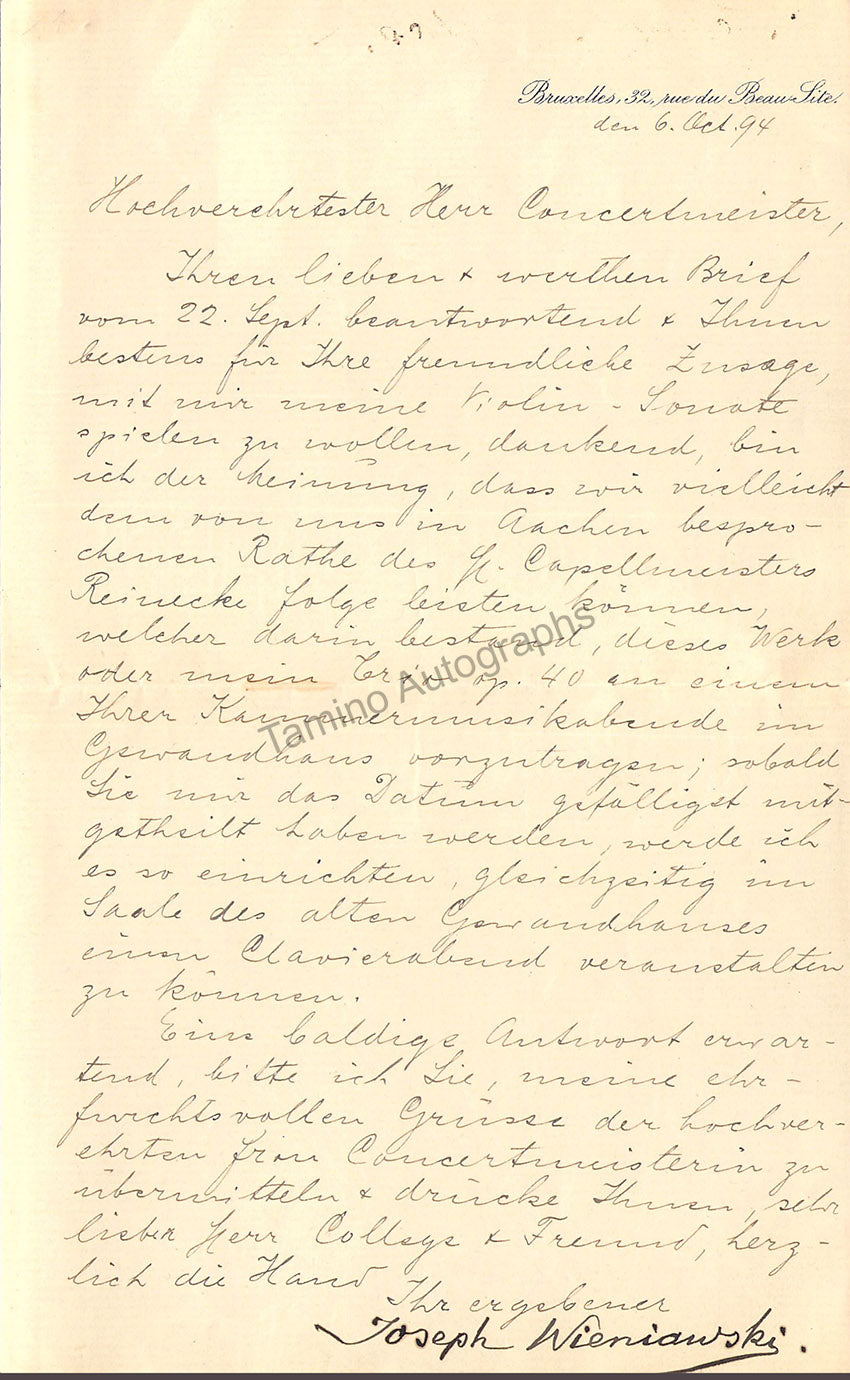 Bruxelles, 32, rue du Beau-Site.
den 6. Oct. 94
Hochverehrtester Herr Concertmeister,
Ihren lieben & werthen Brief
vom 22. Sept. beantwortend & Ihnen
bestens für Ihre freundliche Zusage,
mit mir meine Violin-Sonate
spielen zu wollen, dankend, bin
ich der Meinung, dass wir vielleicht
dem von uns in Aachen bespro-
chenen Rathe des H. Capellmeisters
Reinecke folge leisten können,
welcher darin bestand, dieses Werk
oder mein Trio op. 40 an einem
Ihrer Kammermusikabende im
Gewandhaus vorzutragen; sobald
Sie mir das Datum gefälligst mit-
getheilt haben werden, werde ich
es so einrichten, gleichzeitig im
Saale des alten Gewandhauses
einen Clavierabend veranstalten
zu können.
Eine baldige Antwort erwar-
tend, bitte ich Sie, meine ehr-
furchtsvollen Grüsse der hochver-
ehrten Frau Concertmeisterin zu
übermitteln & drücke Ihnen, sehr
lieber Herr College & Freund, herz-
lich die Hand
Ihr ergebener
Joseph Wieniawski.
Tamino Autographs